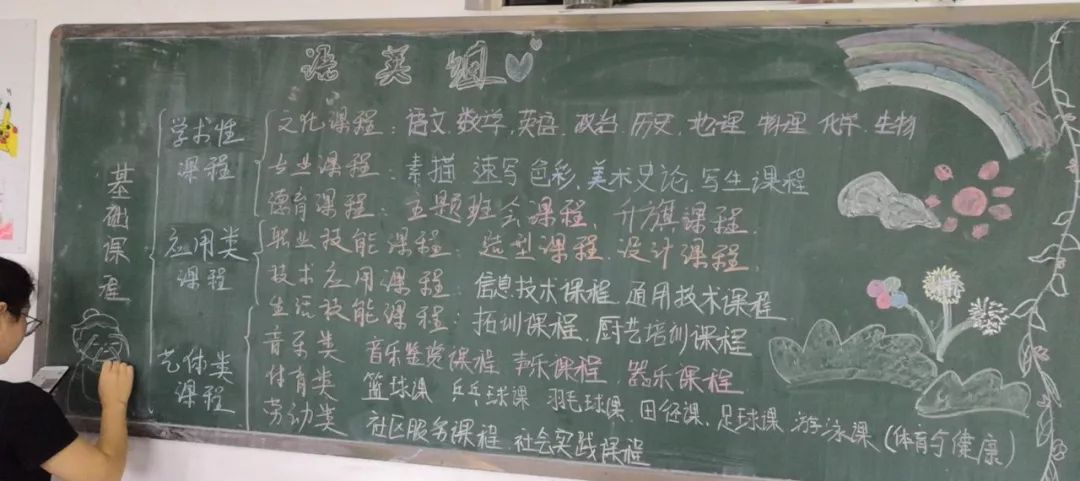 语英组
基础课程
学术性课程
文化课程：语文.数学.英语.政治.历史.地理.物理.化学.生物
专业课程：素描.速写色彩.美术史论.写生课程
德育课程：主题班会课程、升旗课程.
应用类课程
职业技能课程：造型课程.设计课程.
技术应用课程：信息技术课程 通用技术课程
生活技能课程：拓训课程.厨艺培训课程
艺体类课程
音乐类 音乐鉴赏课程 声乐课程 器乐课程
体育类 篮球课 乒乓球课 羽毛球课.田径课.足球课 游泳课(体育与健康)
劳动类 社区服务课程.社会实践课程